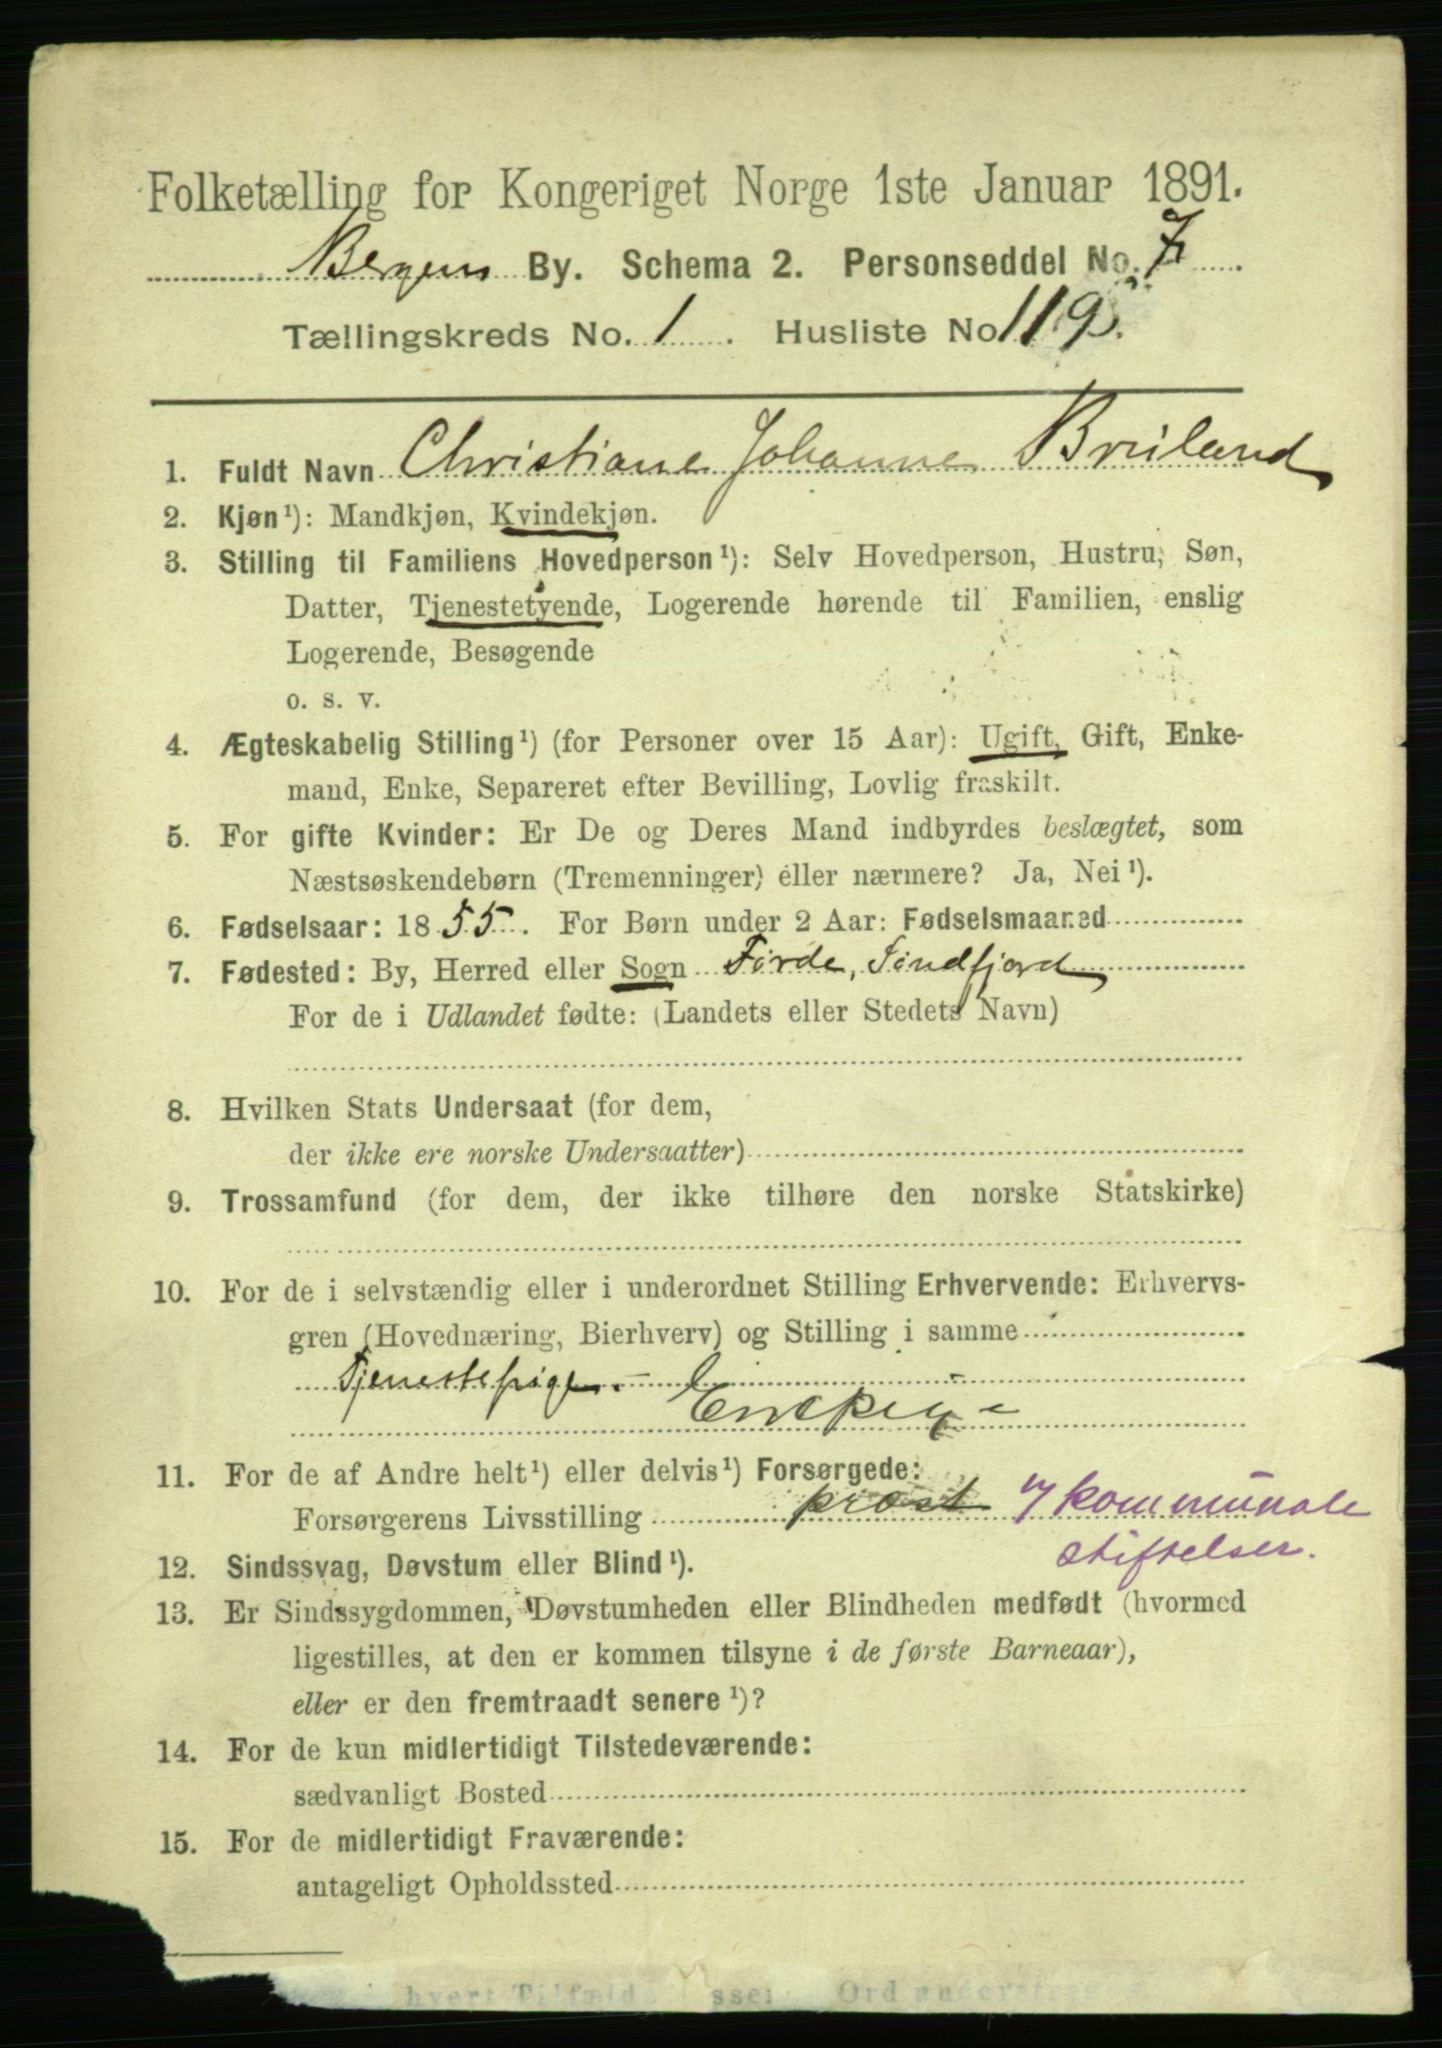 Folketælling for Kongeriget Norge 1ste Januar 1891.
Bergens By. Schema 2. Personseddel No. 7
Tællingskreds No. 1. Husliste No 119.
1. Fuldt Navn Christiane Johanne Bruland
2. Kjøn¹): Mandkjøn, Kvindekjøn.
3. Stilling til Familiens Hovedperson¹): Selv Hovedperson, Hustru, Søn,
Datter, Tjenestetyende, Logerende hørende til Familien, enslig
Logerende, Besøgende
o. s. v.
4. Ægteskabelig Stilling¹) (for Personer over 15 Aar): Ugift, Gift, Enke-
mand, Enke, Separeret efter Bevilling, Lovlig fraskilt.
5. For gifte Kvinder: Er De og Deres Mand indbyrdes beslægtet, som
Næstsøskendebørn (Tremenninger) eller nærmere? Ja, Nei¹).
6. Fødselsaar: 1855. For Børn under 2 Aar: Fødselsmaaned
7. Fødested: By, Herred eller Sogn Førde, Søndfjord
For de i Udlandet fødte: (Landets eller Stedets Navn)
8. Hvilken Stats Undersaat (for dem,
der ikke ere norske Undersaatter)
9. Trossamfund (for dem, der ikke tilhøre den norske Statskirke)
10. For de i selvstændig eller i underordnet Stilling Erhvervende: Erhvervs-
gren (Hovednæring, Bierhverv) og Stilling i samme
Tjenestepige. –
11. For de af Andre helt¹) eller delvis¹) Forsørgede:
Forsørgerens Livsstilling præst v/ kommunale
stiftelser.
12. Sindssvag, Døvstum eller Blind¹).
13. Er Sindssygdommen, Døvstumheden eller Blindheden medfødt (hvormed
ligestilles, at den er kommen tilsyne i de første Barneaar),
eller er den fremtraadt senere¹)?
14. For de kun midlertidigt Tilstedeværende:
sædvanligt Bosted
15. For de midlertidigt Fraværende:
antageligt Opholdssted
hvert Tilfælde Ord understreg